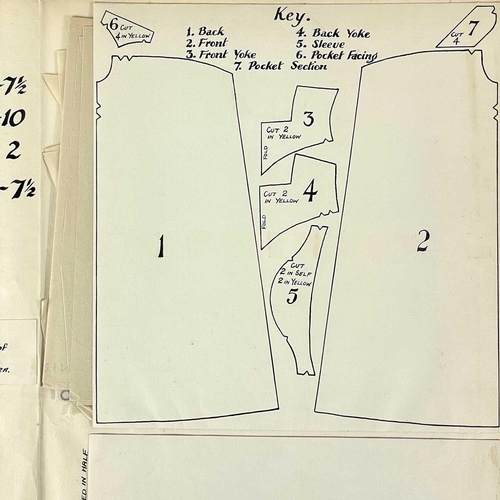 Key.
1. Back
2. Front
3. Front Yoke
4. Back Yoke
5. Sleeve
6. Pocket Facing
7. Pocket Section
6 CUT
4 IN YELLOW
7
CUT
4
3
CUT 2
IN YELLOW
FOLD
4
CUT 2
IN YELLOW
FOLD
CUT
2 IN SELF
2 IN YELLOW
5
1
2
-7½
-10
2
-7½
of
ED IN HALF